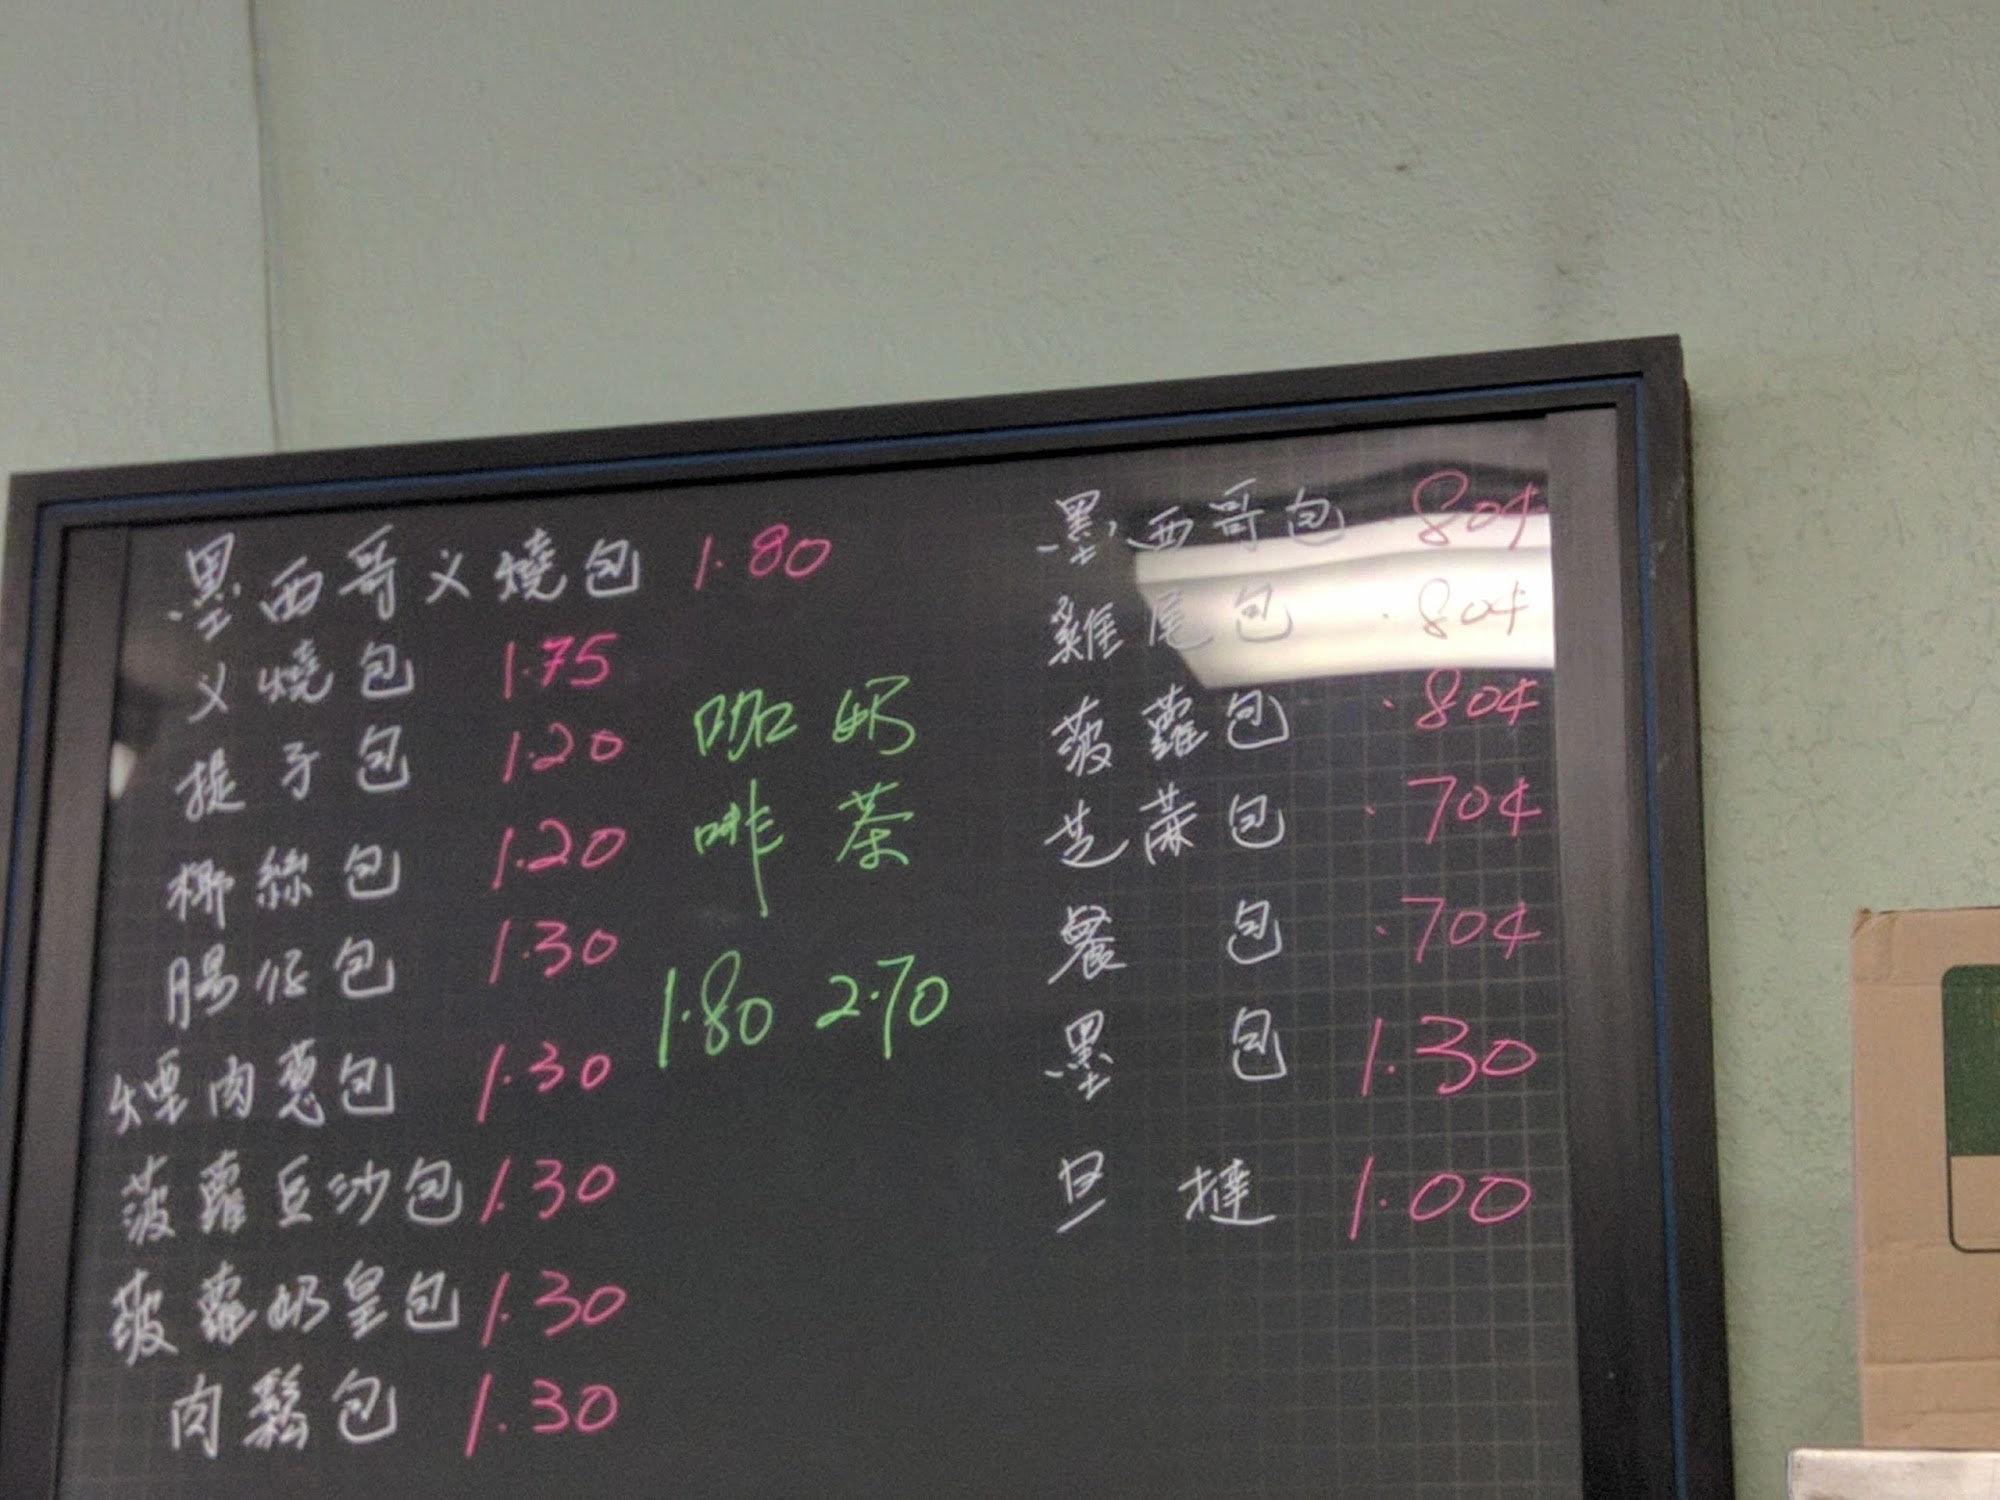 墨西哥义燒包 1.80
义燒包 1.75
提子包 1.20
椰絲包 1.20
腸仔包 1.30
煙肉蔥包 1.30
菠蘿豆沙包 1.30
菠蘿奶皇包 1.30
肉鬆包 1.30
咖啡 1.80
奶茶 2.70
墨西哥包 .80¢
雞尾包 .80¢
菠蘿包 .80¢
芝蔴包 .70¢
餐包 .70¢
墨包 1.30
旦撻 1.00